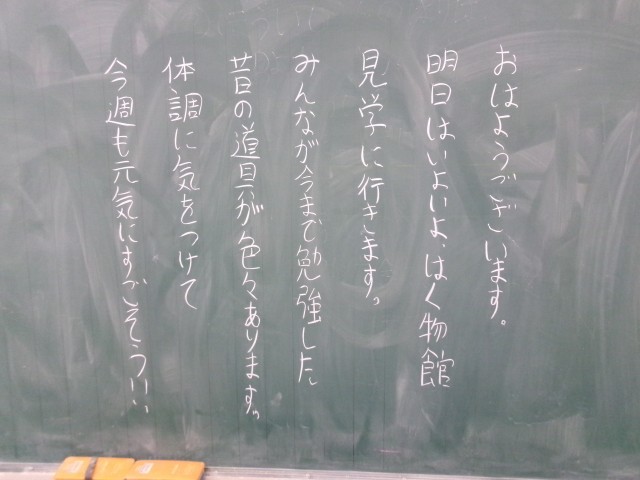 おはようございます。
明日はいよいよ、はく物館
見学に行きます。
みんなが今まで勉強した
昔の道具が色々あります。
体調に気をつけて
今週も元気にすごそう!!